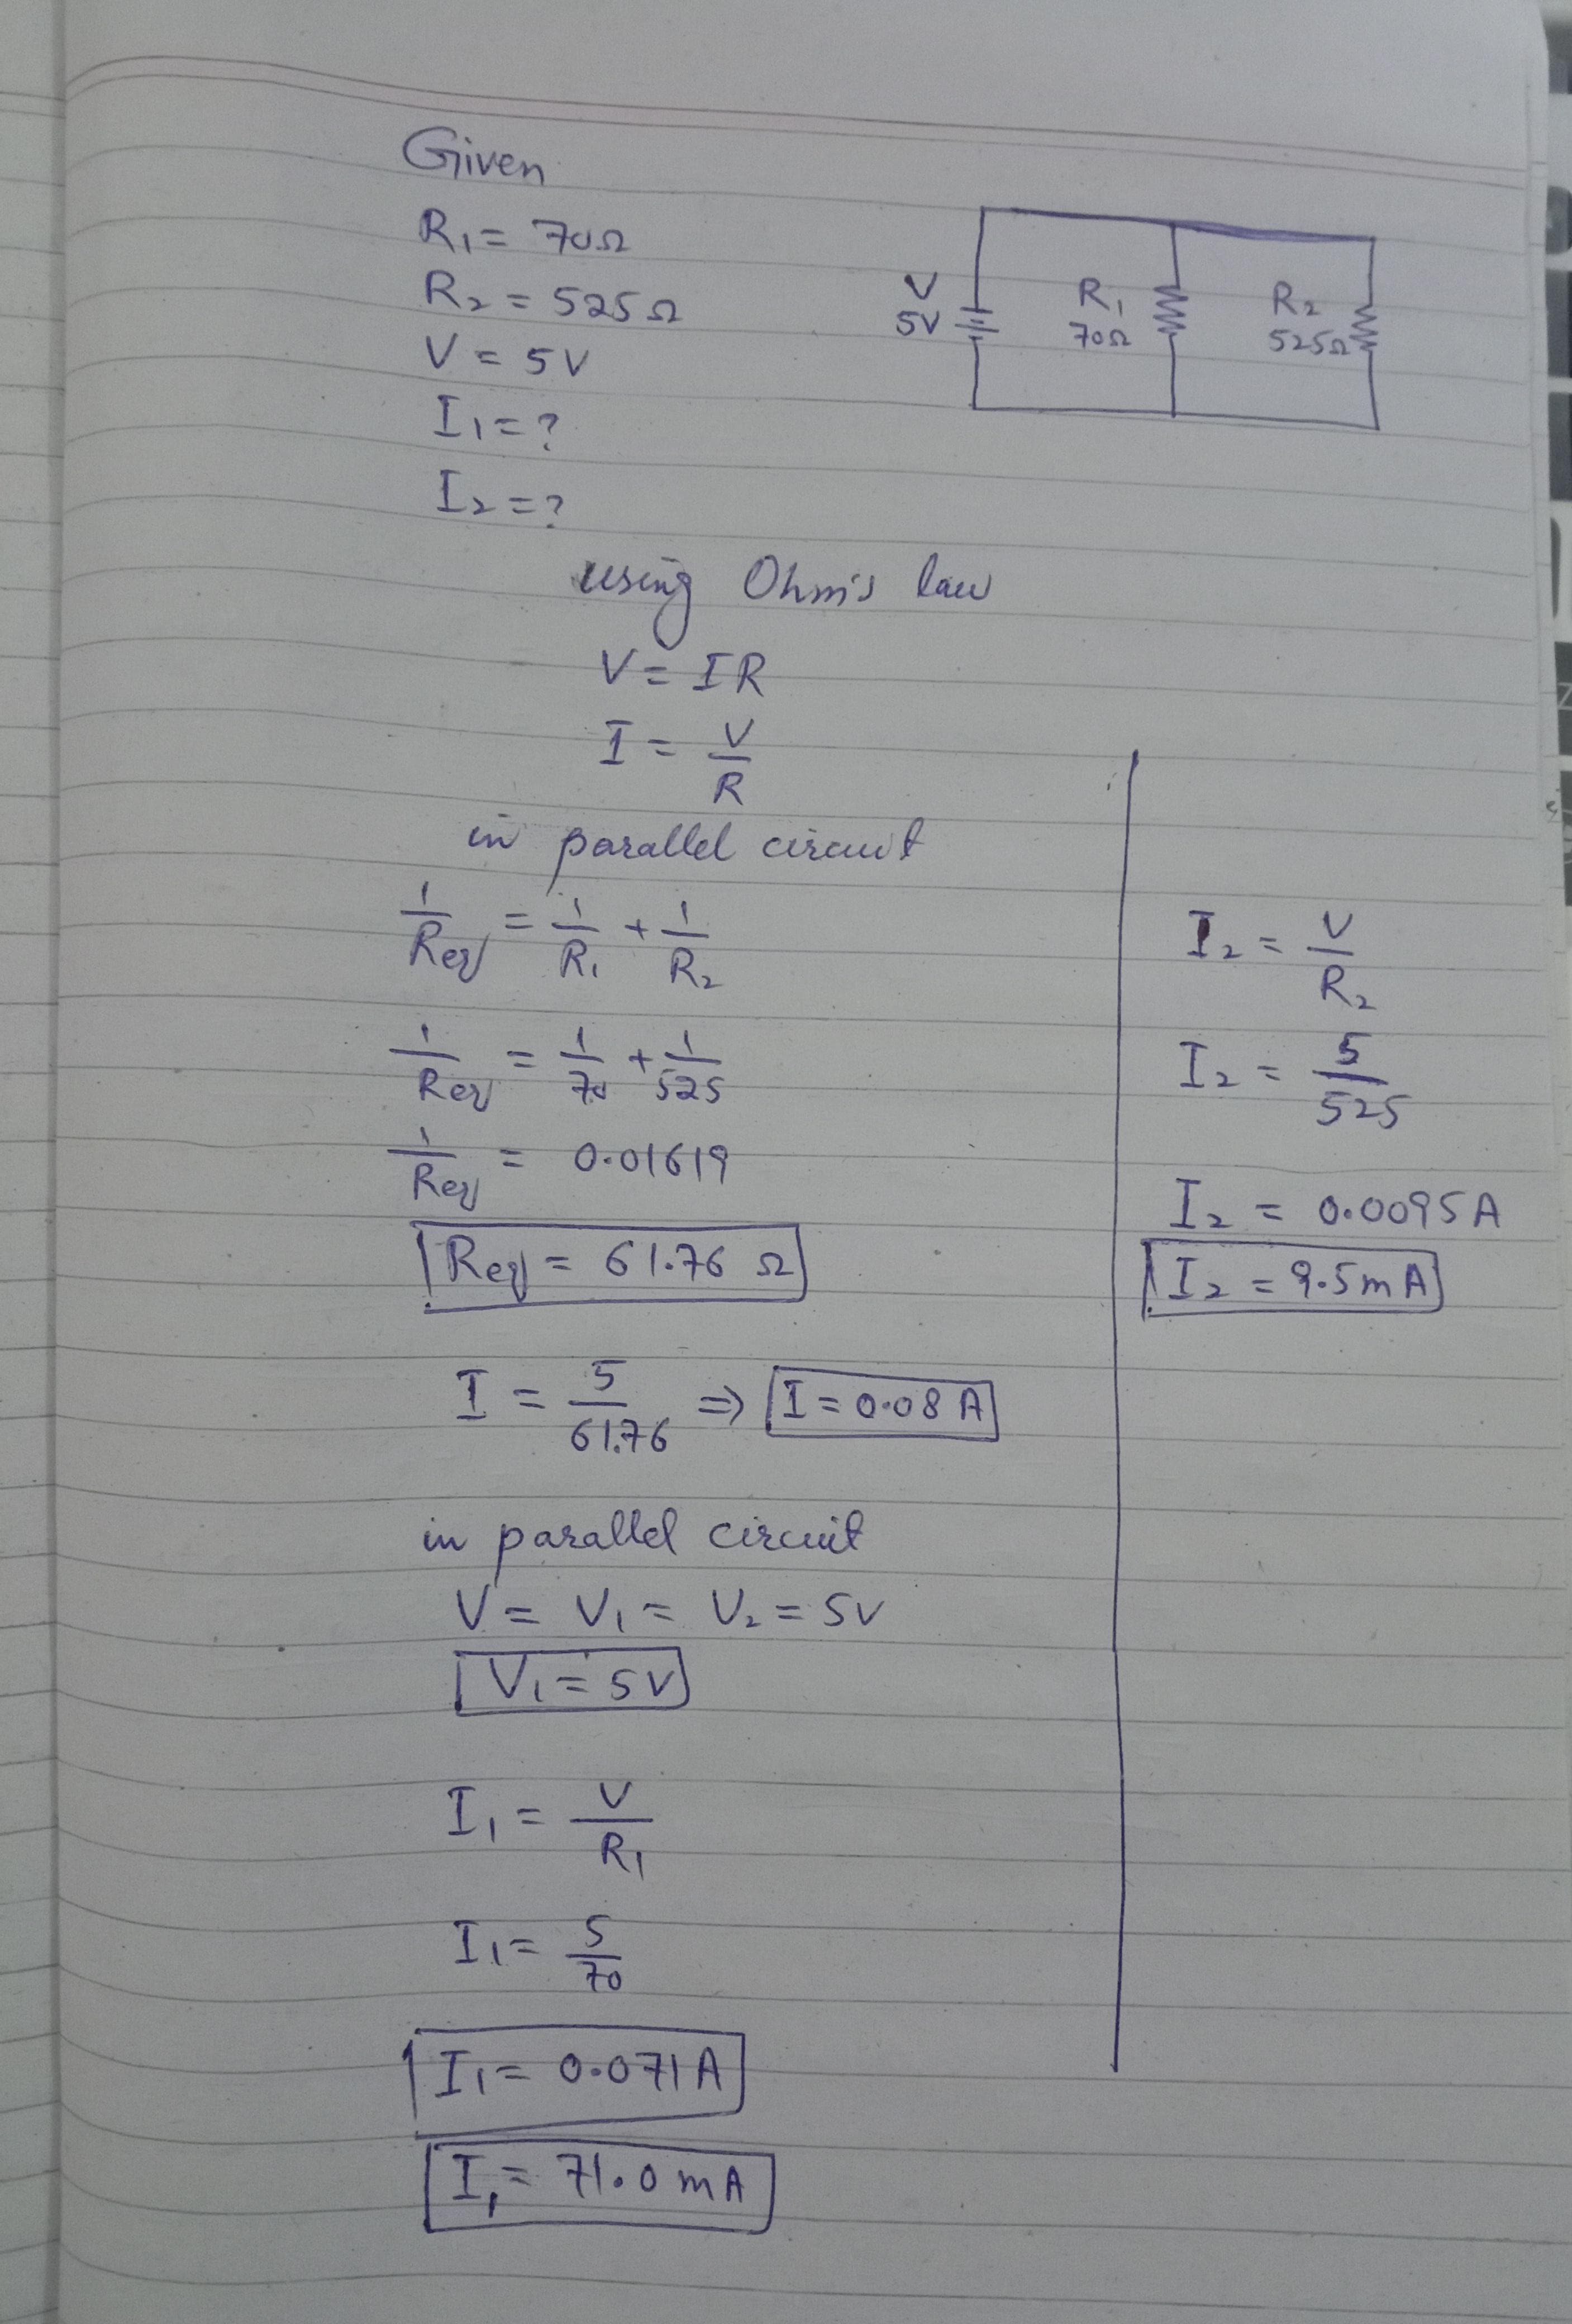 Given
R₁ = 70Ω
R₂ = 525Ω
V = 5V
I₁ = ?
I₂ = ?
V
5V
R₁
70Ω
R₂
525Ω
using Ohm's law
V = IR
I = V/R
in parallel circuit
1/Req = 1/R₁ + 1/R₂
1/Req = 1/70 + 1/525
1/Req = 0.01619
Req = 61.76 Ω
I = 5/61.76 ⇒ I = 0.08 A
in parallel circuit
V = V₁ = V₂ = 5V
V₁ = 5V
I₁ = V/R₁
I₁ = 5/70
I₁ = 0.071A
I₁ = 71.0 mA
I₂ = V/R₂
I₂ = 5/525
I₂ = 0.0095A
I₂ = 9.5mA